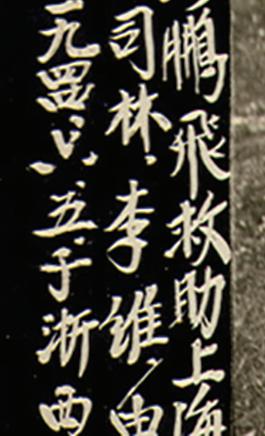 鹏飛救助上海
司林、李维、申
一九四六、八、五、于浙西